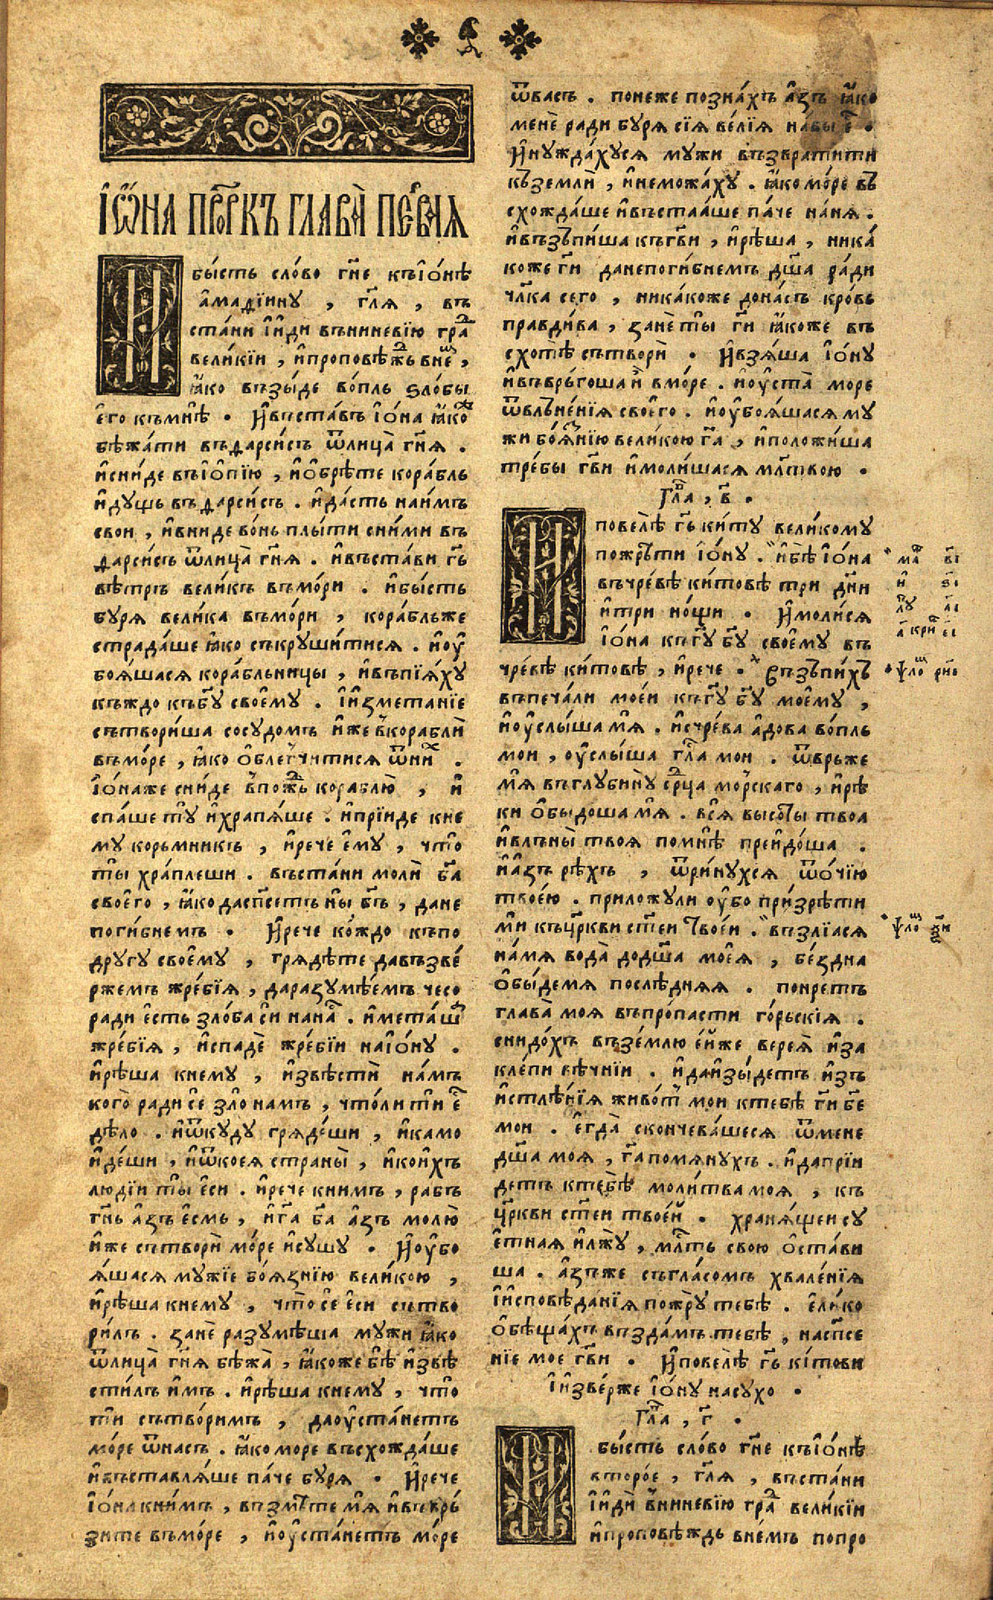 І҆ѡ҃на прⷪ҇ркъ глава̀ пе́рваѧ
И
бы́сть сло́во гн҃е къ і҆о́нѣ
а҆мадїину , гл҃ѧ , въ
ста́ни і҆ и҆ди въ ниневі́ю гра́д
вели́кїи , и҆ проповѣ́жь в не́м ,
ꙗ҆́ко възы́де во́пль ѕло́бы
е҆го къ мнѣ̀ . И҆ въста́въ і҆о́на ꙗ҆́ко
бѣжа́ти въ ѳарси́съ ѿ лица̀ гн҃ѧ .
и҆ сни́де въ і҆опі́ю , и҆ ѡ҆брѣ́те кора́бль
и҆ду́щь въ ѳарси́съ . и҆ да́сть наи́мъ
свои , и҆ вни́де во́нь плы́ти с ни́ми въ
ѳарси́съ ѿ лица̀ гн҃ѧ . и҆ въста́ви гь҃
вѣ́тръ вели́къ въ мо́ри . и҆ бы́сть
бу́рѧ вели́ка въ мо́ри , кора́бль же
страда́ше ꙗ҆́ко съкруши́тисѧ . и҆ оу҆
боѧ́шасѧ кора́бльницы , и҆ въпїѧ́ху
къ́ждо къ бг҃у свое҆му̀ . І҆ и҆змета́нїе
сътвори́ша сосудо́мъ и҆́же в̾ кораблѝ
въ мо́ре , ꙗ҆́ко ѡ҆блегчи́тисѧ ѿ ни́х .
і҆о́на же сни́де в̾ по́ жь кораблю̀ , и҆
спа́ше тꙋ̀ и҆ храпѧ́ше . и҆ прїи́де к не
му ко́рьмникъ , и҆ рече е҆му̀ , что̀
ты̀ хра́плеши . въста́ни молѝ бг҃а
своего̀ , ꙗ҆́ко да сп҃сетъ ны̀ бг҃ъ , да не
поги́бнемъ . И҆ рече ко́ждо къ по
другу свое҆му̀ , грѧдѣ́те да възве́
ржемъ жре́бїѧ , да разумѣ́емъ чесо
ради е҆́сть зло́ба сїи на на́с . и҆ мета́ша
жре́бїѧ , и҆ спадѐ жре́бїи на і҆о́ну .
и҆ рѣ́ша к нему , и҆звѣстѝ на́мъ
кого̀ ради сѐ зло̀ на́мъ , что́ ли тѝ е҆́с
дѣло . и҆ ѿкуду грѧде́ши , и҆ камо
и҆де́ши , и҆ ѿ коеѧ страны̀ , и҆ кои́хъ
людїи ты̀ е҆си . и҆ рече к ни́мъ , рабъ
гн҃ь а҆́зъ е҆смь , и҆ га҃ ба҃ а҆́зъ молю̀
и҆́же сътворѝ мо́ре и҆ су́шу . И҆ оу҆бо
ѧ́шасѧ мужїе боѧ́знїю вели́кою ,
и҆ рѣ́ша к нему , что̀ сѐ е҆си сътво
ри́лъ . занѐ разумѣ́ша мужи ꙗ҆́ко
ѿ лица̀ гн҃ѧ бѣжа̀ , ꙗ҆́ко же бѣ̀ и҆звѣ
стилъ и҆́мъ . и҆ рѣ́ша к нему , что̀
тѝ сътвори́мъ , да оу҆ста́нетъ
мо́ре ѿ на́съ . ꙗ҆́ко мо́ре въсхожда́ше
и҆ въставлѧ́ше па́че бу́рѧ . И҆ рече
і҆о́на к ни́мъ , възмѣ́те мѧ̀ и҆ въврь́
зите въ мо́ре , и҆ оу҆ста́нетъ мо́ре
ѿ ва́съ . поне́же позна́хъ а҆́зъ ꙗ҆́ко
менѐ ради бу́рѧ сїѧ̀ ве́лїѧ на вы̀ е҆́с .
И҆ нужда́хусѧ мужи възврати́ти
к̾ землѝ , и҆ не можа́ху . ꙗ҆́ко мо́ре въ
схожда́ше и҆ въстаа́ше па́че на нѧ̀ .
и҆ възъпи́ша къ гв҃и , и҆ рѣ́ша , ника́
коже ги҃ да не поги́бнемъ дш҃а ра́ди
чл҃ка сего , ника́коже дона́съ кро́вь
праведи́ва , занѐ ты̀ ги҃ ꙗ҆́коже въ
схотѣ̀ сътворѝ . И҆ взѧ́ша і҆о́ну
и҆ въврь́гоша и҆̀ в мо́ре . и҆ оу҆ста̀ мо́ре
ѿ влъне́нїѧ своего̀ . и҆ оу҆боѧ́шасѧ му
жи боѧ́знїю вели́кою га҃ , и҆ положи́ша
тре́бы гв҃и и҆ моли́шасѧ мл҃твою .
Гла҃ , в҃ .
И
повелѣ̀ гь҃ ки́ту вели́кому
пожрѣ́ти і҆о́ну . и҆ бѣ̀ і҆о́на
въ чре́вѣ ки́товѣ три дни
и҆ три но́щи . И҆ моли́сѧ
і҆о́на къ гу҃ бг҃у своему̀ въ
чре́вѣ ки́товѣ , и҆ рече . Възъпи́хъ
въ печа́ли мое́и къ гу҃ бг҃у моему̀ ,
и҆ оу҆слы́ша мѧ̀ . и҆с чре́ва а҆́дова во́пль
мои , оу҆слы́ша гла́с мои . ѿврь́же
мѧ̀ въ глубину̀ ср́дца мо́рскаго , и҆ рѣ́
ки ѡ҆быдоша мѧ̀ . всѧ̀ высоты̀ твоѧ
и҆ влъны̀ твоѧ̀ по мнѣ̀ преидо́ша .
и҆ а҆́зъ рѣ́хъ , ѿри́нухсѧ ѿ о́чїю
твое́ю . приложу́ ли оу҆́бо призрѣ́ти
мѝ къ цр҃кви ст҃е́и твое́и . възлїа́сѧ
на́ мѧ вода̀ до дш҃а мое́ѧ , бе́здна
ѡ҆бы́де мѧ послѣ́днѧѧ . понре́тъ
глава̀ моѧ въ пропасти го́рьскїѧ .
снидо́хъ въ зе́млю е҆́и же вереѧ̀ и҆ за
кле́пи вѣ́чнїи . и҆ да и҆зы́детъ и҆зъ
и҆стлѣ́нїѧ живо́т мои к тебѣ̀ ги҃ бе҃
мои . е҆гда̀ сконцева́шесѧ ѿ мене
дш҃а моѧ , га҃ помѧну́хъ . и҆ да прїи
детъ к тебѣ̀ моли́тва моѧ , къ
цр҃кви ст҃е́и твое́й . хранѧ́щеи су
е҆́тнаѧ и҆ лжу̀ , мл҃ть свою̀ ѡ҆ста́ви
ша . а҆́зъ же съ гла́сомъ хвале́нїѧ
і҆ и҆сповѣ́данїѧ пожрꙋ̀ тебѣ̀ . е҆ли́ко
ѡ҆бѣща́хъ въздамъ тебѣ̀ , на сп҃се
нїе мое гв҃и . И҆ повелѣ̀ гь҃ ки́тови
і҆ и҆зве́рже і҆о́ну на су́хо .
Гла҃ , г҃ .
И
бы́сть сло́во гн҃е къ і҆о́нѣ
второ́е , гл҃ѧ , въста́ни
і҆ и҆дѝ в̾ ниневі́ю гра́д вели́кїи
и҆ проповѣ́ждь в не́мъ по про